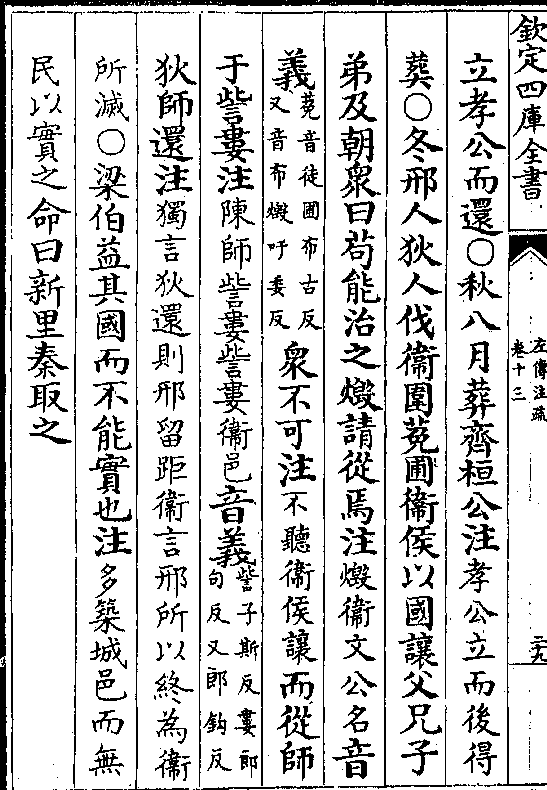 欽定四庫全書
左傳注疏
卷十三
二十九
立孝公而還○秋八月葬齊桓公注孝公立而後得
葬○冬邢人狄人伐衞圍菟圃衞侯以國讓父兄子
弟及朝衆曰茍能治之燬請從焉注燬衞文公名音
義菟音徒圃布古反又音布燬吁委反衆不可注不聽衞侯讓而從師
于訾婁注陳師訾婁訾婁衞邑音義訾子斯反婁郎句反又郎鈎反
狄師還注獨言狄還則邢留距衞言邢所以終為衞
所滅○梁伯益其國而不能實也注多築城邑而無
民以實之命曰新里秦取之